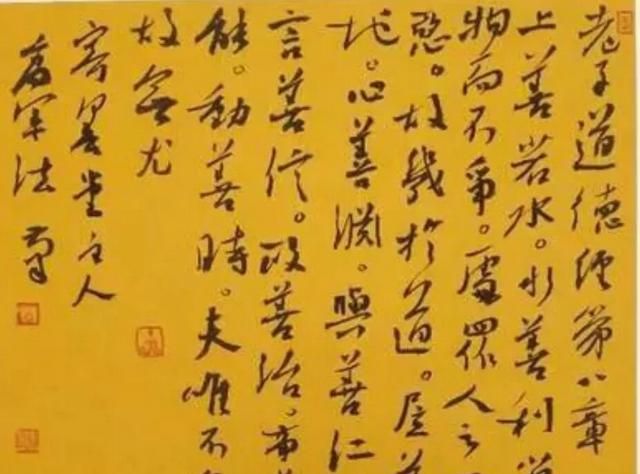 老子道德經第八章
上善若水。水善利
物而不爭。處眾人之
惡。故幾於道。居善
地。心善淵。與善仁
言善信。政善治。事
能。動善時。夫唯不
故無尤
寄墨堂主人
軍法